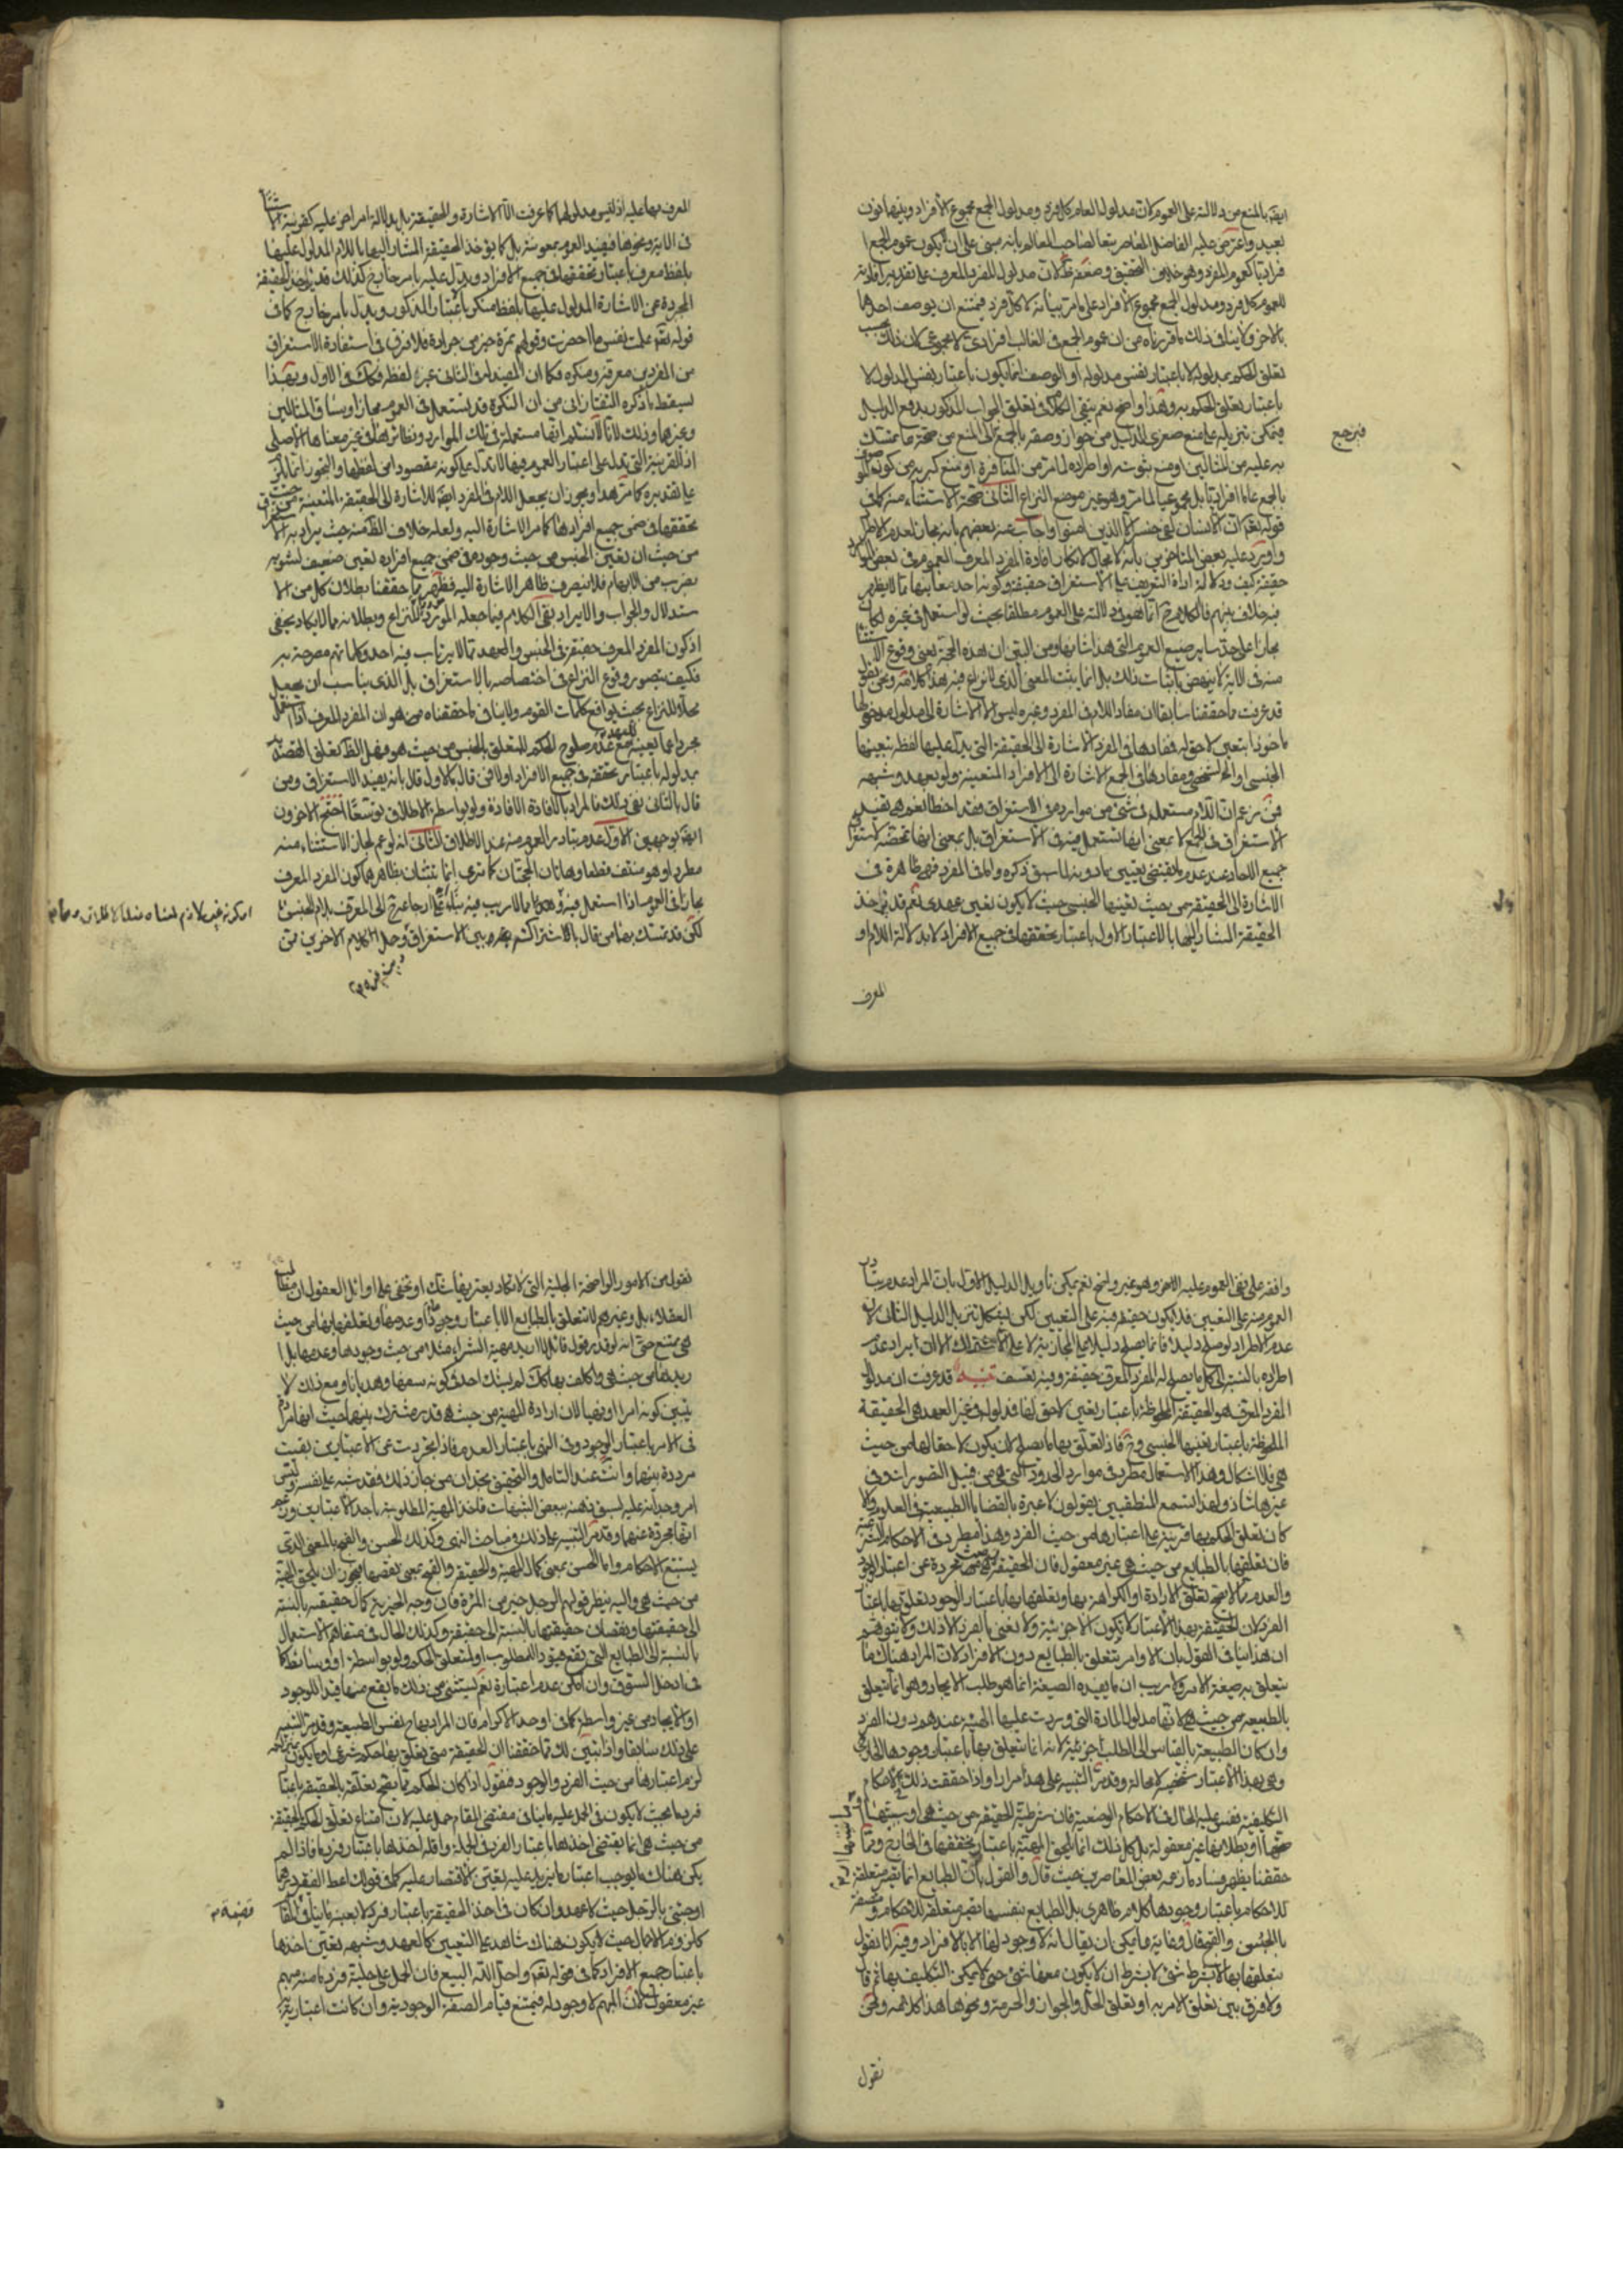 ايضا بالمنع من دلالته على العموم لان مدلول العام كل فرد ومدلول الجمع مجموع الأفراد وبينهما بون
بعيد واعترض عليه الفاضل المعاصر تبعا لصاحب المعالم بانه مبنى على ان يكون عموم الجمع ا
فراديا كعموم المفرد وهو خلاف التحقيق وضعفه ظ لان مدلول المفرد المعرف على تقدير افادته
للعموم كل فرد ومدلول الجمع مجموع الأفراد على ما مر بيانه لا كل فرد فيمتنع ان يوصف احدهما
بالاخر ولا ينافى ذلك ما قررناه من ان عموم الجمع فى الغالب افرادى لا مجموعى لان ذلك بحسب
تعلق الحكم بمدلوله لا باعتبار نفس مدلوله او الوصف انما يكون باعتبار نفس المدلول لا
باعتبار تعلق الحكم به وهذا واضح نعم يبقى الكلام فى تعلق الجواب المذكور بدفع الدليل
فيمكن تنزيله على منع صغرى الدليل من جواز وصفه بالجمع
فيرجع
به عليه من المثالين او منع ثبوته او اطراده لما مر من المنافرة او منع كبريه من كون
بالجمع عاما افراديا بل مجموعيا لما مر وهو غير موضع النزاع الثانى صحة الاستثناء منه كما فى
قوله تعم ان الانسان لفى خسر الا الذين امنوا واجاب عنه بعضهم بانه مجاز لعدم الاطراد
واورد عليه بعض المتاخرين بانه لا مجال لانكار افادة المفرد المعرف العموم فى بعض الموارد
حقيقة كيف ودلالة اداة التعريف على الاستغراق حقيقة وكونه احد معانيها مما لا يظهر
فيه خلاف بينهم فالكلام ح انما هو فى دلالته على العموم مطلقا بحيث لو استعمل فى غيره لكان
مجازا على حد ساير صيغ العموم التى هذا شانها ومن البين ان هذه الحجة يعنى وقوع الاستثناء
منه فى الاية لا ينهض باثبات ذلك بل انما يثبت المعنى الذى لا نزاع فيه هذا كلامه ونحن نقول
قد عرفت مما حققنا سابقا ان مفاد اللام فى المفرد وغيره ليس الا الاشارة الى مدلول مدخولها
ماخوذا بتعين لاحق له فمفادها فى المفرد الاشارة الى الحقيقة التى يدل عليها لفظه بتعينها
الجنسى او الشخصى ومفادها فى الجمع الاشارة الى الافراد المتعينة ولو بعهد وشبهه
فمن زعم ان اللام مستعملة فى شئ من موارده فى الاستغراق فقد اخطا نعم هى تفيد
الاستغراق فى الجمع لا بمعنى انها تستعمل فى الاستغراق بل بمعنى انها
جميع الاحاد عند عدم ما يقتضى تعيين ما دونها لما سبق ذكره واما فى المفرد فهى ظاهرة فى
الاشارة الى الحقيقة من حيث تعينها الجنسى حيث لا يكون تعين عهدى نعم قد يؤخذ
الحقيقة المشار اليها بالاعتبار الاول باعتبار تحققها فى جميع الافراد لا بدلالة اللام او
المعرف
المعرف بها عليه اذ ليس مدلولها كما عرفت الا الاشارة والحقيقة بل بدلالة امر اخر عليه كقرينة الاستثناء
فى الاية ونحوها فيفيد العموم بمعونته بل كما يؤخذ الحقيقة المشار اليها باللام المدلول عليها
بلفظ معرف باعتبار تحققها فى جميع الافراد ويدل عليه بامر خارج كذلك قد يؤخذ الحقيقة
المجردة عن الاشارة المدلول عليها بلفظ منكر بالاعتبار المذكور ويدل بامر خارج كما فى
قوله تعم علمت نفس ما احضرت وقولهم تمرة خير من جرادة فلا فرق فى استفادة الاستغراق
من المفرد بين معرفه ومنكره فكما ان المفيد له فى الثانى غير لفظه فكك فى الاول وبهذا
يسقط ما ذكره التفتازانى من ان النكرة قد يستعمل فى العموم مجازا وساق المثالين
وغيرهما وذلك لانا لا نسلم انها مستعملة فى تلك الموارد ونظايرها فى غير معناها الاصلى
اذ القرينة التى تدل على اعتبار العموم فيها لا تدل على كونه مقصودا من لفظها والتجوز انما يلزم
على تقديره كما مر هذا ويجوز ان يجعل اللام فى المفرد ايضا للاشارة الى الحقيقة المتعينة من حيث
تحققها فى ضمن جميع افرادها كما مر الاشارة اليه ولعله خلاف الظ منه حيث يراد به الاستغراق
من حيث ان تعين الجنس من حيث وجوده فى ضمن جميع افراده تعين ضعيف لشوبه
بضرب من الابهام فلا ينصرف ظاهر الاشارة اليه فظهر مما حققنا بطلان كل من الا
ستدلال والجواب والايراد بقى الكلام فيما جعله المورد محلا للنزاع وبطلانه مما لا يكاد يخفى
اذ كون المفرد المعرف حقيقة فى الجنس والعهد مما لا يرتاب فيه احد وكلماتهم مصرحة به
فكيف يتصور وقوع النزاع فى اختصاصه بالاستغراق بل الذى يناسب ان يجعل
محلا للنزاع بحيث يوافق كلمات القوم ولا ينافى ما حققناه هو ان المفرد المعرف اذا استعمل
مجردا عما يعينه للعهد مع عدم صلوح الحكم للتعلق بالجنس من حيث هو فهل الظ تعلق القصد
بمدلوله باعتبار تحققه فى جميع الافراد اولا فمن قال بالاول قال بانه يفيد الاستغراق ومن
قال بالثانى نفى ذلك فالمراد بالافادة الافادة ولو بواسطة الاطلاق توسعا احتج الاخرون
ايضا بوجهين الاول عدم تبادر العموم منه عند الاطلاق الثانى انه لو عم لجاز الاستثناء منه
مطردا وهو منتف قطعا وهاتان الحجتان كما ترى انما تثبتان بظاهرهما كون المفرد المعرف
مجازا فى العموم اذا استعمل فيه وهو مما لا ريب فيه بناء على ارجاع الى المعرف بلام الجنس
لكن قد تمسك بهما من قال بالاشتراك
امكن غير لازم
وافقه على نفى العموم عليه الاخر وهو غير واضح نعم يمكن تاويل الدليل الاول بان المراد عدم تبادر
العموم منه على التعيين فلا يكون حقيقة فيه على التعيين لكن يشكل تنزيل الدليل الثانى لان
عدم الاطراد لو صلح دليلا فانما يصلح دليلا على المجازية لا على الاشتراك الا ان يراد عدم
اطراده بالنسبة الى كل ما يصلح له المفرد المعرف حقيقة وفيه تعسف تنبيه قد عرفت ان مدلول
المفرد المعرف هو الحقيقة الملحوظة باعتبار تعين لاحق لها فمدلوله فى غير العهد هى الحقيقة
الملحوظة باعتبار تعينها الجنسى وح فاذا تعلق بها ما يصلح لان يكون لاحقا لها من حيث
هى فلا اشكال وهذا الاستعمال مطرد فى موارد الحدود التى هى من قبيل التصورات وفى
غيرها شاذ ولهذا تسمع المنطقيين يقولون لا عبرة بالقضايا الطبيعية فى العلوم والا
كان تعلق الحكم بها قرينة على اعتبارها من حيث الفرد وهذا مطرد فى الاحكام الشرعية
فان تعلقها بالطبايع من حيث هى غير معقول فان الحقيقة من حيث هى مجردة عن اعتبار الوجود
والعدم مما لا يصح تعلق الارادة او الكراهة بها وتعلقهما بها باعتبار الوجود تعلق بها باعتبار
الفرد لان الحقيقة بهذا الاعتبار لا تكون الا جزئية ولا نعنى بالفرد الا ذلك ولا يتوهم
ان هذا ينافى القول بان الاوامر يتعلق بالطبايع دون الافراد لان المراد هناك ما
يتعلق به صيغة الامر ولا ريب ان ما يفيده الصيغة انما هو طلب الايجاد وهو انما يتعلق
بالطبيعة من حيث هى لانها مدلول المادة التى وردت عليها الهيئة عندهم دون الفرد
وان كان الطبيعة بالقياس الى الطلب جزئية لانه انما يتعلق بها باعتبار وجودها الخارجى
وهى بهذا الاعتبار شخصية لا محالة وقد مر التنبيه على هذا مرارا واذا حققت ذلك فى الاحكام
التكليفية فقس عليه الحال فى الاحكام الوضعية فان شرطية الحقيقة من حيث هى او سببيتها او
صحتها او بطلانها غير معقولة بل كل ذلك انما يلحق المهية باعتبار تحققها فى الخارج ومما
حققنا يظهر فساد ما زعمه بعض المعاصرين حيث قال والقول بان الطبايع انما تصير متعلقة
للاحكام باعتبار وجودها كلام ظاهرى بل الطبايع بنفسها تصير متعلقة للاحكام ومتصفة
بالحسن والقبح قال وغاية ما يمكن ان يقال انه لا وجود لها الا بالافراد وفيه انا نقول
بتعلقها بها لا بشرط شئ لا بشرط ان لا يكون معها شئ حتى لا يمكن التكليف بها ثم قال
ولا فرق بين تعلق الامر به او تعلق الحل والجواز والحرمة ونحوها هذا كلامه ونحن
نقول
نقول من الامور الواضحة الجلية التى لا تكاد يعتريها شك او تخفى على اوائل العقول ان مقاصد
العقلاء بل وغيرهم لا تتعلق بالطبايع الا باعتبار وجودها او عدمها وتعلقها بها من حيث
هى ممتنع حتى انه لو قدر قول قائل لا اريد مهية الشراء مثلا من حيث وجودها وعدمها بل ا
ريدها من حيث هى واكلف بها كك لم يشك احد فى كونه سفها وهذيانا ومع ذلك لا
يتبين كونه امرا او نهيا لان ارادة المهية من حيث هى قدر مشترك بينهما حيث انها مرادة
فى الامر باعتبار الوجود وفى النهى باعتبار العدم فاذا تجردت عن الاعتبارين بقيت
مرددة بينهما وانت عند التامل والتحقيق تجد ان من جاز ذلك فقد شبه على نفسه ولبس
امر وجدانه عليه لسبق ذهنه ببعض الشبهات فاخذ المهية المطلوبة باحد الاعتبارين وزعم
انها مجردة عنهما وقد مر التنبيه على ذلك فى مباحث النهى وكذلك الحسن والقبح بالمعنى الذى
يستتبع الاحكام واما الحسن بمعنى كمال المهية والحقيقة والقبح بمعنى نقصهما فيجوز ان يلحق المهية
من حيث هى واليه ينظر قولهم الرجل خير من المرأة فان وجه الخيرية كمال حقيقته بالنسبة
الى حقيقتها ونقصان حقيقتها بالنسبة الى حقيقته وكذلك الحال فى متفاهم الاستعمال
بالنسبة الى الطبايع التى تقع قيود المطلوب او لمتعلق الحكم ولو بواسطة او وسائط كما
فى ادخل السوق وان امكن عدم اعتباره نعم يستثنى من ذلك ما يقع منها قيدا للوجود
او الايجاد من غير واسطة كما فى اوجد الاكرام فان المراد بها ح نفس الطبيعة وقد مر التنبيه
على ذلك سابقا واذا تبين لك مما حققنا ان الحقيقة متى تعلق بها حكم شرعى او ما يكون بمنزلته
لزم اعتبارها من حيث الفرد والوجود فنقول اذا كان الحكم مما يصح تعلقه بالحقيقة باعتبار
فرد ما بحيث لا يكون فى الحمل عليه ما ينافى مقتضى المقام حمل عليه لان امتناع تعلق الحكم بالحقيقة
من حيث هى انما يقتضى اخذها باعتبار الفرد فى الجملة واقله اخذها باعتبار فرد ما فاذا لم
يكن هناك ما يوجب اعتبار ما يزيد عليه تعين الاقتصار عليه كما فى قولك اعط الفقير درهما
اوجئنى بالرجل حيث لا عهد وان كان فى اخذ الحقيقة باعتبار فرد لا بعينه ما ينافى المقام
قضية م
كلزوم الاجمال حيث لا يكون هناك شاهد على التعيين كالعهد وشبهه تعين اخذها
باعتبار جميع الافراد كما فى قوله تعم واحل الله البيع فان الحمل على حلية فرد ما منه مبهم
غير معقول لان المبهم لا وجود له فيمتنع قيام الصفة الوجودية به وان كانت اعتبارية